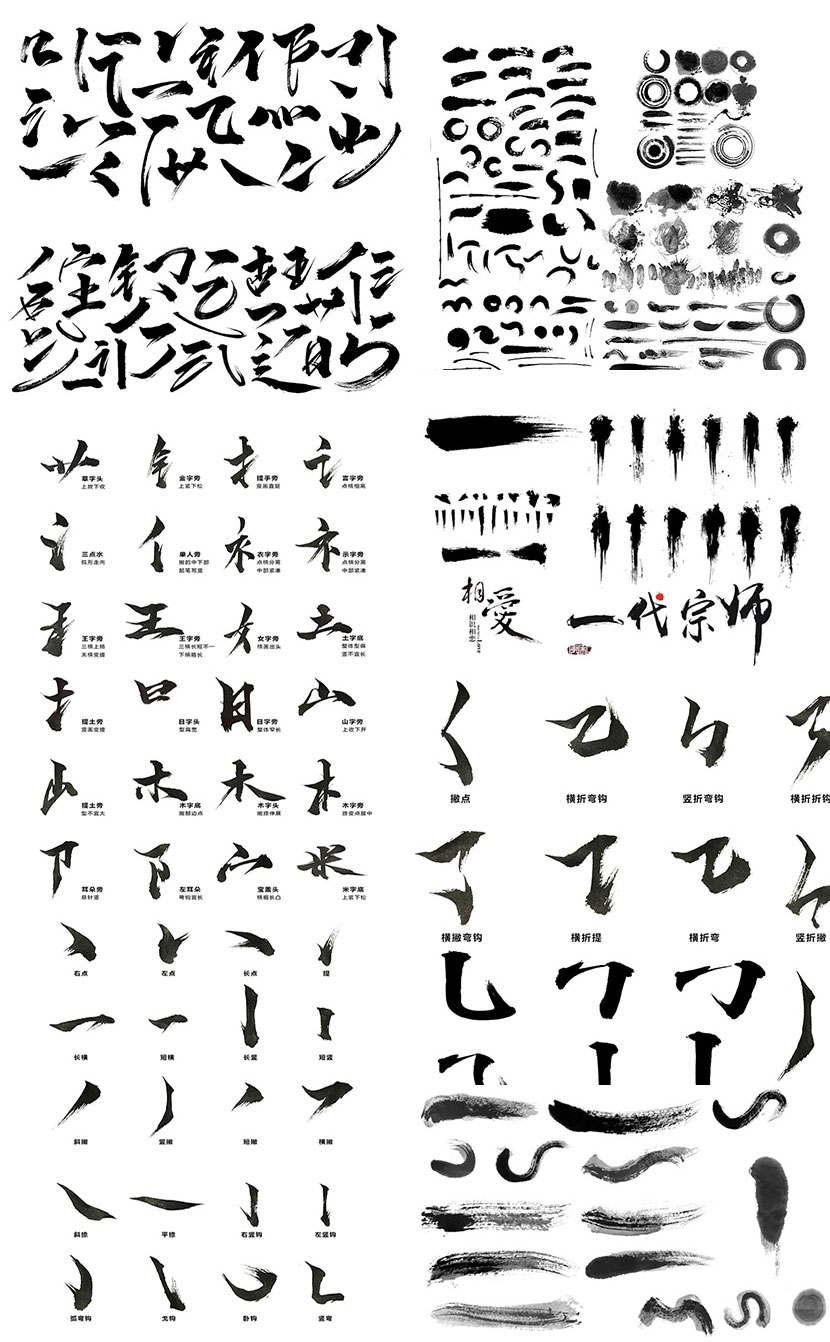 草字头
上放下收
金字旁
上紧下松
提手旁
竖画直挺
言字旁
点横相离
三点水
弧形走向
单人旁
撇的中下部
起笔写竖
衣字旁
点横分离
中部紧凑
示字旁
点横分离
中部紧凑
王字旁
三横上扬
末横变提
王字旁
三横长短不一
下横略长
女字旁
横画出头
土字底
整体型偏
竖不宜长
提土旁
竖画变提
日字头
型扁宽
日字旁
整体窄长
山字旁
上收下开
提土旁
型不宜大
木字底
撇部边点
木字头
撇捺伸展
木字旁
捺变点居中
耳朵旁
悬针竖
左耳朵
弯钩宜长
宝盖头
横略长凸
米字底
上紧下松
右点
左点
长点
提
长横
短横
长竖
短竖
斜撇
竖撇
短撇
横撇
斜捺
平捺
右竖钩
左竖钩
弧弯钩
戈钩
卧钩
竖弯
相愛
相识相恋
Love
一代宗师
撇点
横折弯钩
竖折弯钩
横折折钩
横撇弯钩
横折提
横折弯
竖折撇